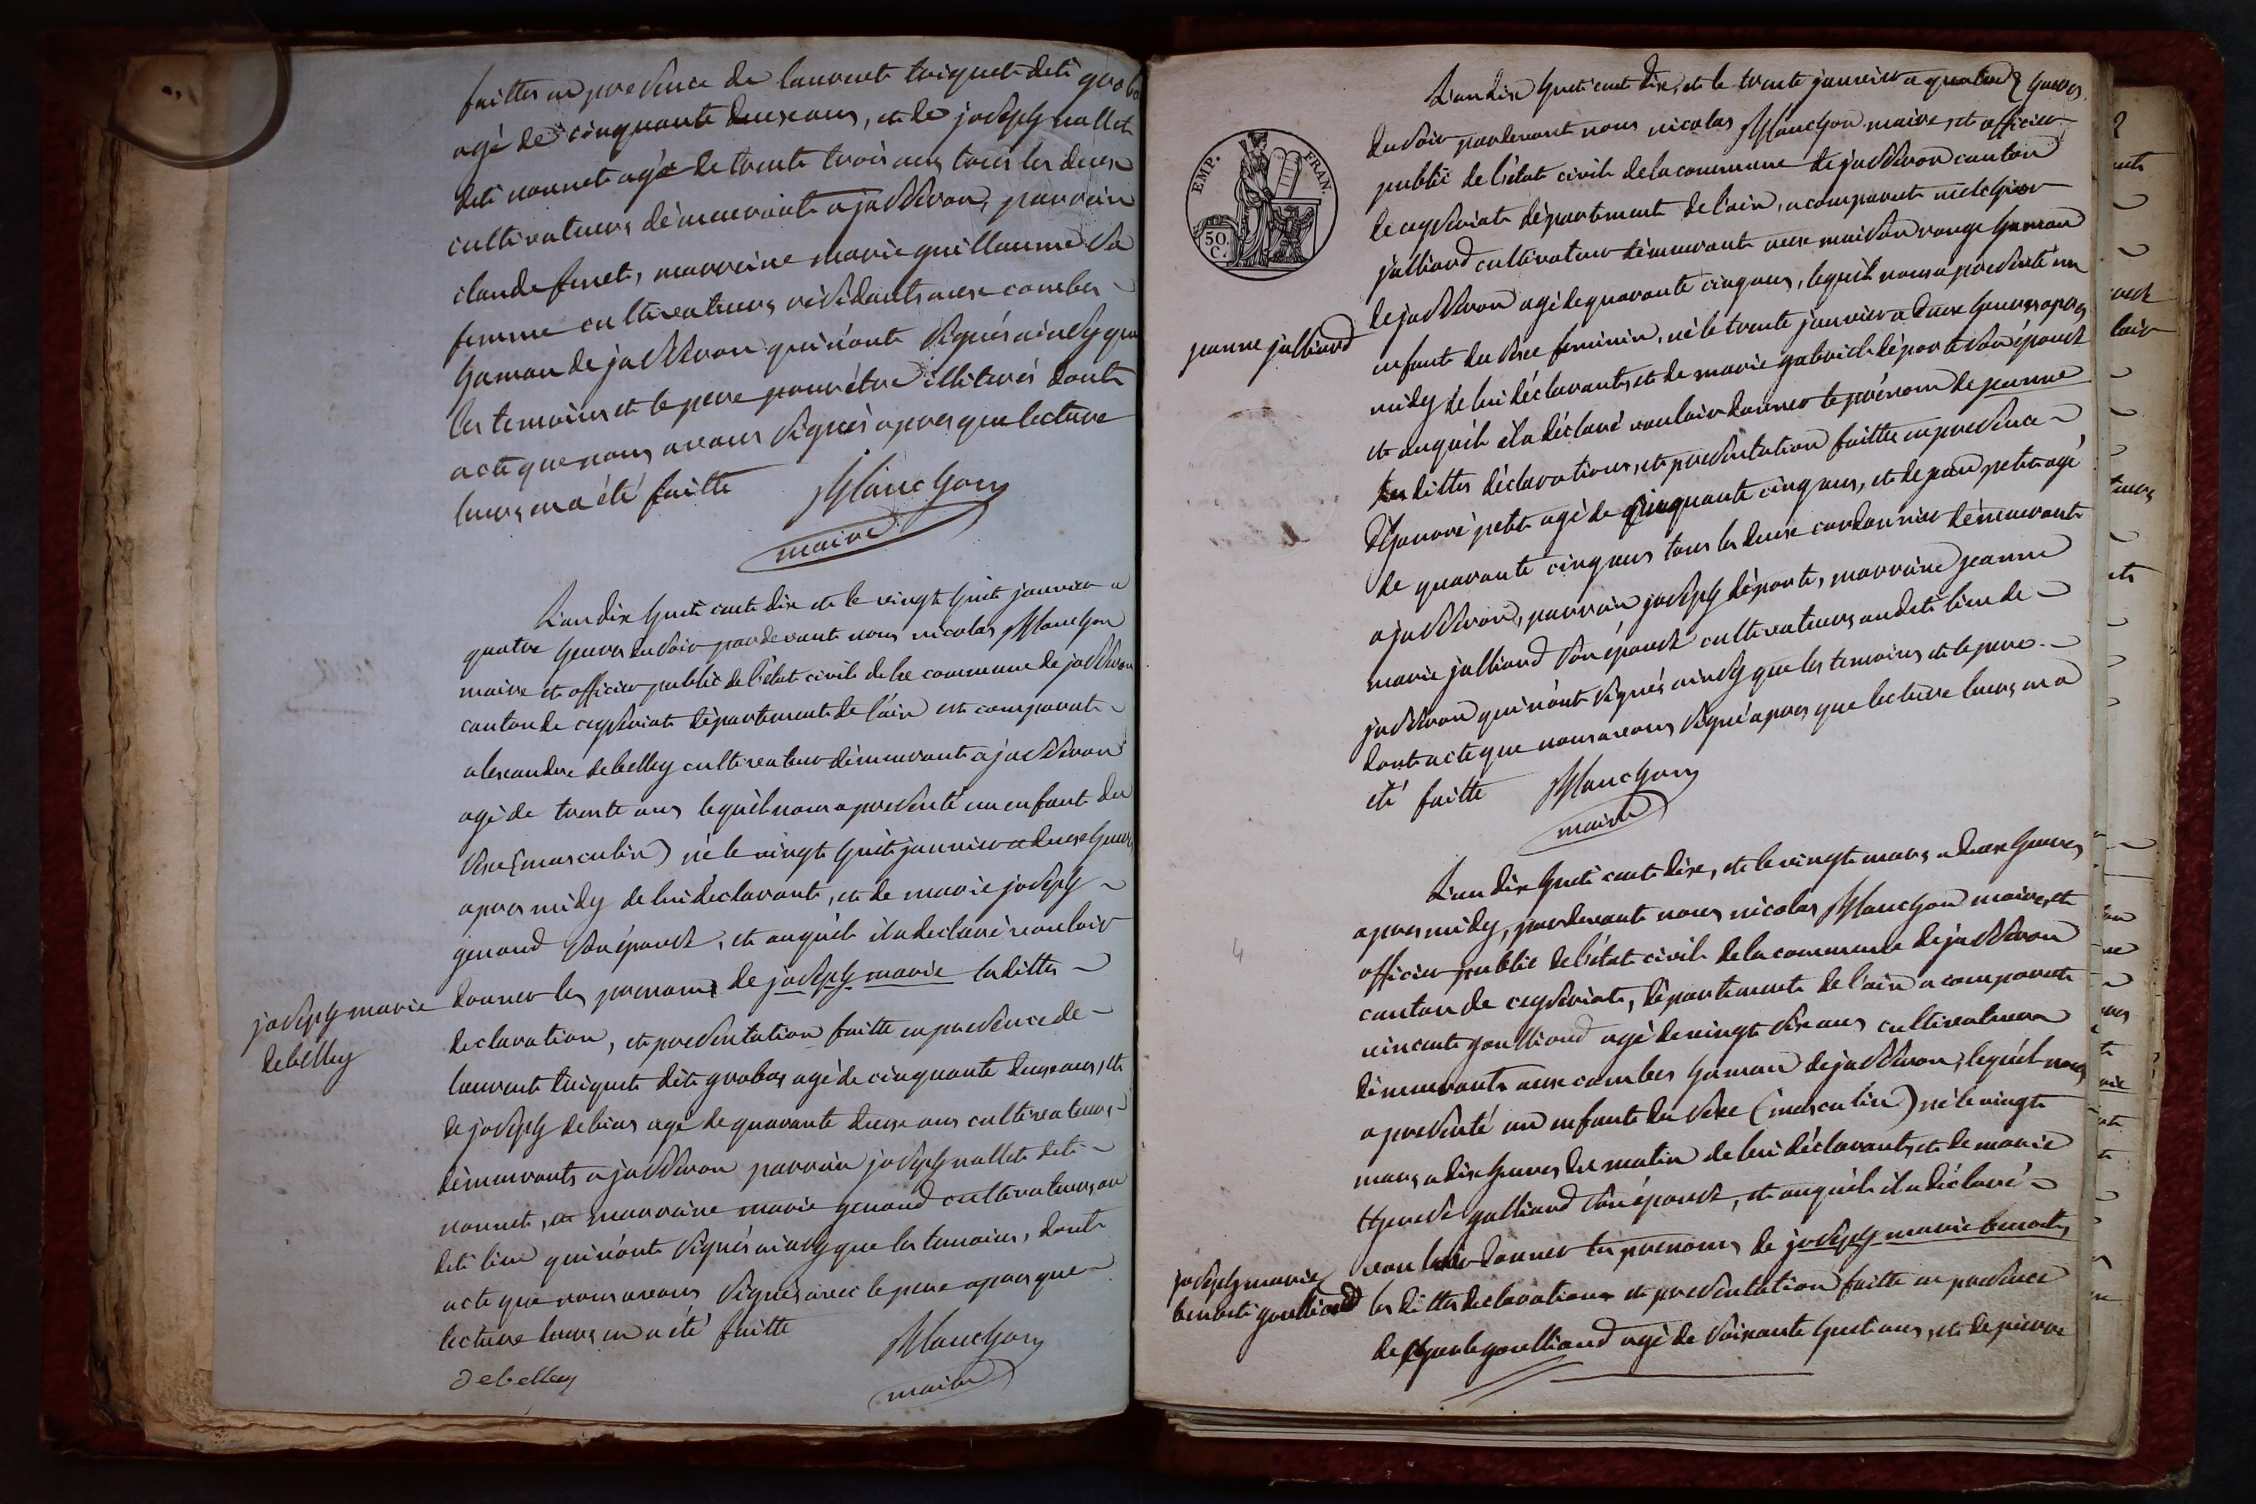 faittes en presence de laurent tuiquet dit grobas
agé de cinquante deux ans, et de joseph nallet
dit nonnet agé de trente trois ans tous les deux
cultivateurs démeurants a jasseron, parrain
claude feret, marreine marie guillaume sa
femme cultivateurs résidants aux combes
hamau de jasseron qui n'ont signés ainsy que
les temoins et le pere pour être illiterés dont
acte que nous avons signés apres que lecture
leurs en a été faitte
Planchon
maire
L'an dix huit cent dix et le vingt huit janvier a
quatre heures du soir pardevant nous nicolas Planchon
maire et officier public de l'état civil de la commune de jasseron
canton de ceyseriat département de l'ain est comparut
alexandre debelley cultivateur démeurant a jasseron
agé de trente ans lequel nous a presenté un enfant du
sexe (masculin) né le vingt huit janvier a deux heures
apres midy de lui déclarant, et de marie joseph
genoud son épouse, et auquel il a declaré vouloir
donner les prenoms de joseph marie la ditte
joseph marie
debelley
declaration, et presentation faitte en presence de
laurent tuiquet dit grobas agé de cinquante deux ans, et
de joseph debias agé de quarante deux ans cultivateurs
démeurants a jasseron parrain joseph nallet dit
nonnet, et marraine marie genoud cultivateurs au
dit lieu qui n'ont signés ainsy que les temoins, dont
acte que nous avons signés avec le pere apres que
lecture leurs en a été faitte
debelley
Planchon
maire
EMP. FRAN.
50. C.
L'an dix huit cent dix, et le trente janvier a quatre heures
du soir pardevant nous nicolas Planchon maire, et officier
public de l'état civil de la commune de jasseron canton
de ceyseriat département de l'ain, a comparut melchior
julliard cultivateur démeurant aux maison rouge hamau
de jasseron agé de quarante cinq ans, lequel nous a presenté un
jeanne julliard
enfant du sexe feminin, né le trente janvier a deux heures apres
midy de lui déclarant, et de marie gabriel déporte son épouse
et auquel il a déclaré vouloir donner le prénom de jeanne
les dittes déclarations, et presentation faitte en presence
d'honoré petit agé de cinquante cinq ans, et de jean petit agé
de quarante cinq ans tous les deux cordonnier démeurant
a jasseron, parrain joseph déporte, marraine jeanne
marie julliard son épouse cultivateurs audit lieu de
jasseron qui n'ont signés ainsy que les temoins et le pere
dont acte que nous avons signé apres que lecture leurs en a
été faitte
Planchon
maire
L'an dix huit cent dix, et le vingt mars a deux heures
apres midy, pardevant nous nicolas Planchon maire, et
officier public de l'état civil de la commune de jasseron
4
canton de ceyseriat, département de l'ain a comparut
vincent goulliaud agé de vingt six ans cultivateur
démeurants aux combes hamau de jasseron, lequel nous
a presenté un enfant du sexe (masculin) né le vingt
mars a dix heures du matin de lui déclarant, et de marie
therese galliard son épouse, et auquel il a déclaré
vouloir donner les prenoms de joseph marie benoit,
joseph marie
benoit goulliaud
les dittes declarations et presentation faitte en presence
de charle goulliaud agé de soixante huit ans, et de pierre